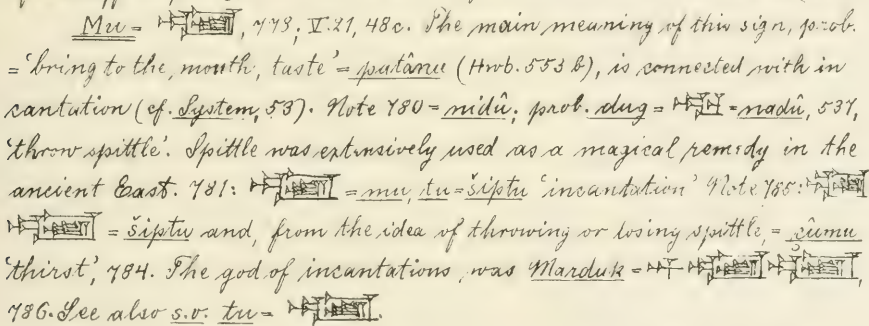 Mu = 𒅲, 779; V. 21, 48c. The main meaning of this sign, prob.
= 'bring to the mouth, taste' = patânu (Hwb. 553 b), is connected with in
cantation (cf. System, 53). Note 780 = nidû; prob. dug = = nadû, 537,
'throw spittle'. Spittle was extensively used as a magical remedy in the
ancient East. 781: 𒅲 = mu, tu = šiptu 'incantation' Note 785: 𒅲
𒅲 = šiptu and, from the idea of throwing or losing spittle, = ṣûmu
'thirst', 784. The god of incantations was Marduk = 𒀭 𒅲 𒅲,
786. See also s.v. tu = 𒅲.